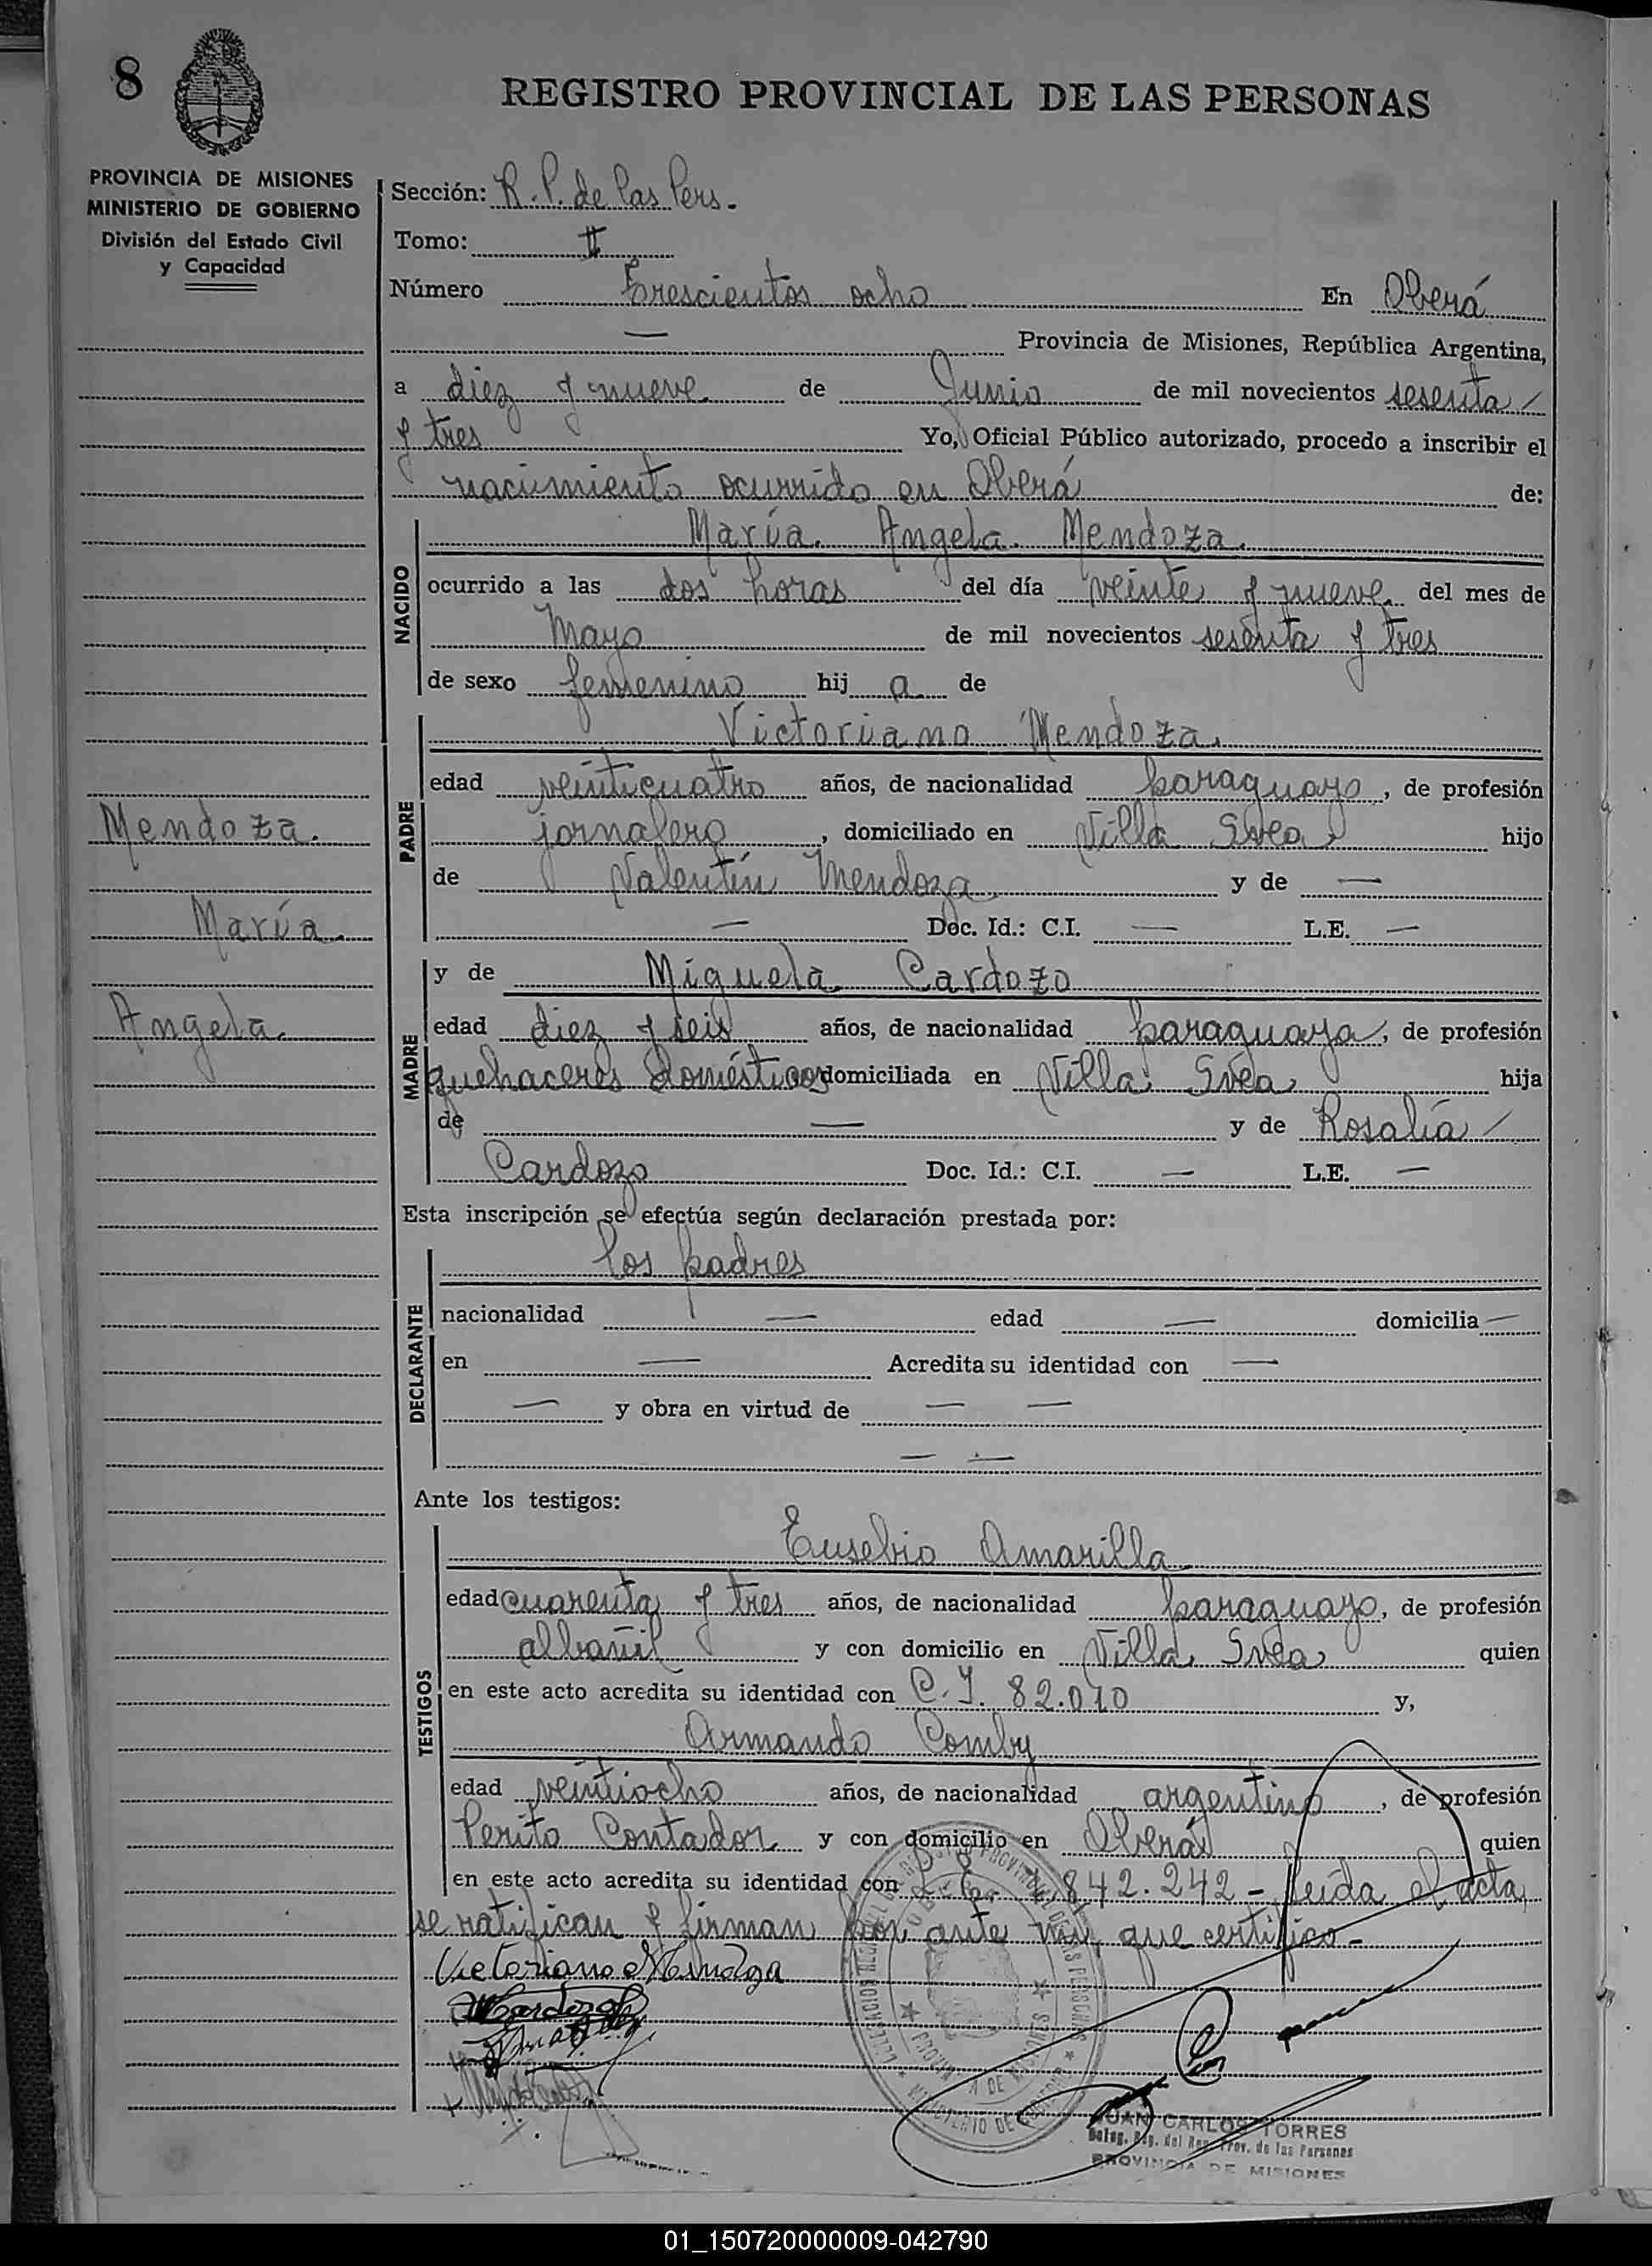 8
REGISTRO PROVINCIAL DE LAS PERSONAS
PROVINCIA DE MISIONES
MINISTERIO DE GOBIERNO
División del Estado Civil
y Capacidad
Sección: R. P. de las Pers.
Tomo: II
Número Trescientos ocho En Oberá
— Provincia de Misiones, República Argentina,
a diez y nueve de Junio de mil novecientos sesenta /
y tres Yo, Oficial Público autorizado, procedo a inscribir el
nacimiento ocurrido en Oberá de:
NACIDO
María Angela Mendoza.
ocurrido a las dos horas del día veinte y nueve del mes de
Mayo de mil novecientos sesenta y tres
de sexo femenino hij a de
PADRE
Victoriano Mendoza.
edad veinticuatro años, de nacionalidad paraguayo, de profesión
jornalero, domiciliado en Villa Svea hijo
de Valentín Mendoza y de —
— Doc. Id.: C.I. — L.E. —
Mendoza.
María
Angela
MADRE
y de Miguela Cardozo
edad diez y seis años, de nacionalidad paraguaya, de profesión
quehaceres domésticos domiciliada en Villa Svea hija
de — y de Rosalía /
Cardozo Doc. Id.: C.I. — L.E. —
Esta inscripción se efectúa según declaración prestada por:
DECLARANTE
los padres
nacionalidad — edad — domicilia —
en — Acredita su identidad con —
— y obra en virtud de — —
— —
Ante los testigos:
TESTIGOS
Eusebio Amarilla
edad cuarenta y tres años, de nacionalidad paraguayo, de profesión
albañil y con domicilio en Villa Svea quien
en este acto acredita su identidad con C. I. 82.010 y,
Armando Comby
edad veintiocho años, de nacionalidad argentino, de profesión
Perito Contador y con domicilio en Oberá quien
en este acto acredita su identidad con 842.242 - Leída el acta,
se ratifican y firman por ante mi, que certifico -
Victoriano Mendoza
JUAN CARLOS TORRES
Deleg. Reg. del Reg. Prov. de las Personas
PROVINCIA DE MISIONES
01_150720000009-042790